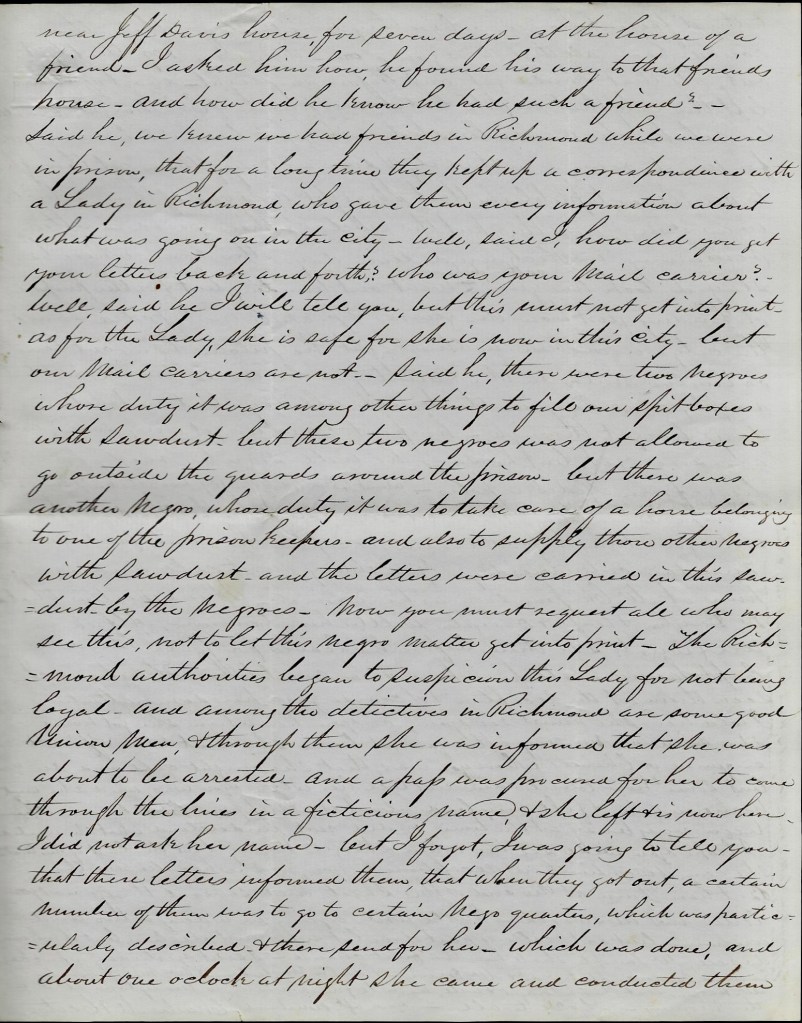 near Jeff Davis house, for seven days - at the house of a
friend - I asked him how, he found his way to that friends
house - and how did he know he had such a friend? -
Said he, we knew we had friends in Richmond while we were
in prison, that for a long time they kept up a correspondence with
a Lady in Richmond, who gave them every information about
what was going on in the city - well, said I, how did you get
your letters back and forth,? who was your Mail carrier? -
well, said he I will tell you, but this must not get into print -
as for the Lady, she is safe for she is now in this city - but
our Mail carriers are not - Said he, there were two Negroes
whose duty it was among other things to fill our spit boxes
with sawdust - but these two negroes was not allowed to
go outside the guards around the prison - but there was
another Negro, whose duty it was to take care of a horse belonging
to one of the prison keepers - and also to supply those other Negroes
with sawdust - and the letters were carried in this saw-
=dust - by the Negroes - Now you must request all who may
see this, not to let this negro matter get into print - The Rich=
=mond authorities began to suspicion this Lady for not being
loyal - and among the detectives in Richmond are some good
Union Men, & through them she was informed that she was
about to be arrested - and a pass was procured for her to come
through the lines in a ficticious name, & she left & is now here -
I did not ask her name - but I forgot, I was going to tell you -
that these letters informed them, that when they got out, a certain
number of them was to go to certain Nego quarters, which was partic=
=ularly described - & there send for her - which was done, and
about one oclock at night she came and conducted them